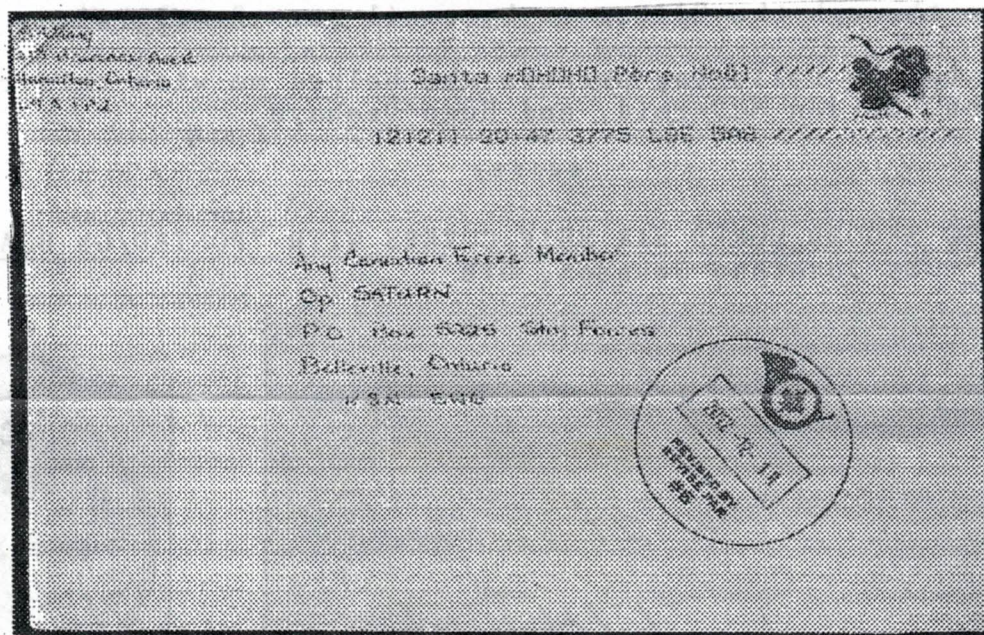 Hamilton, Ontario
Santa HOHOHO Père Noël
121211 20:47 3775 L0E 5A0
Any Canadian Forces Member
Op SATURN
P.O. Box 5225 Stn Forces
Belleville, Ontario
K8N 5W6
2012-12-18
REVISED BY
REVISE PAR
#6